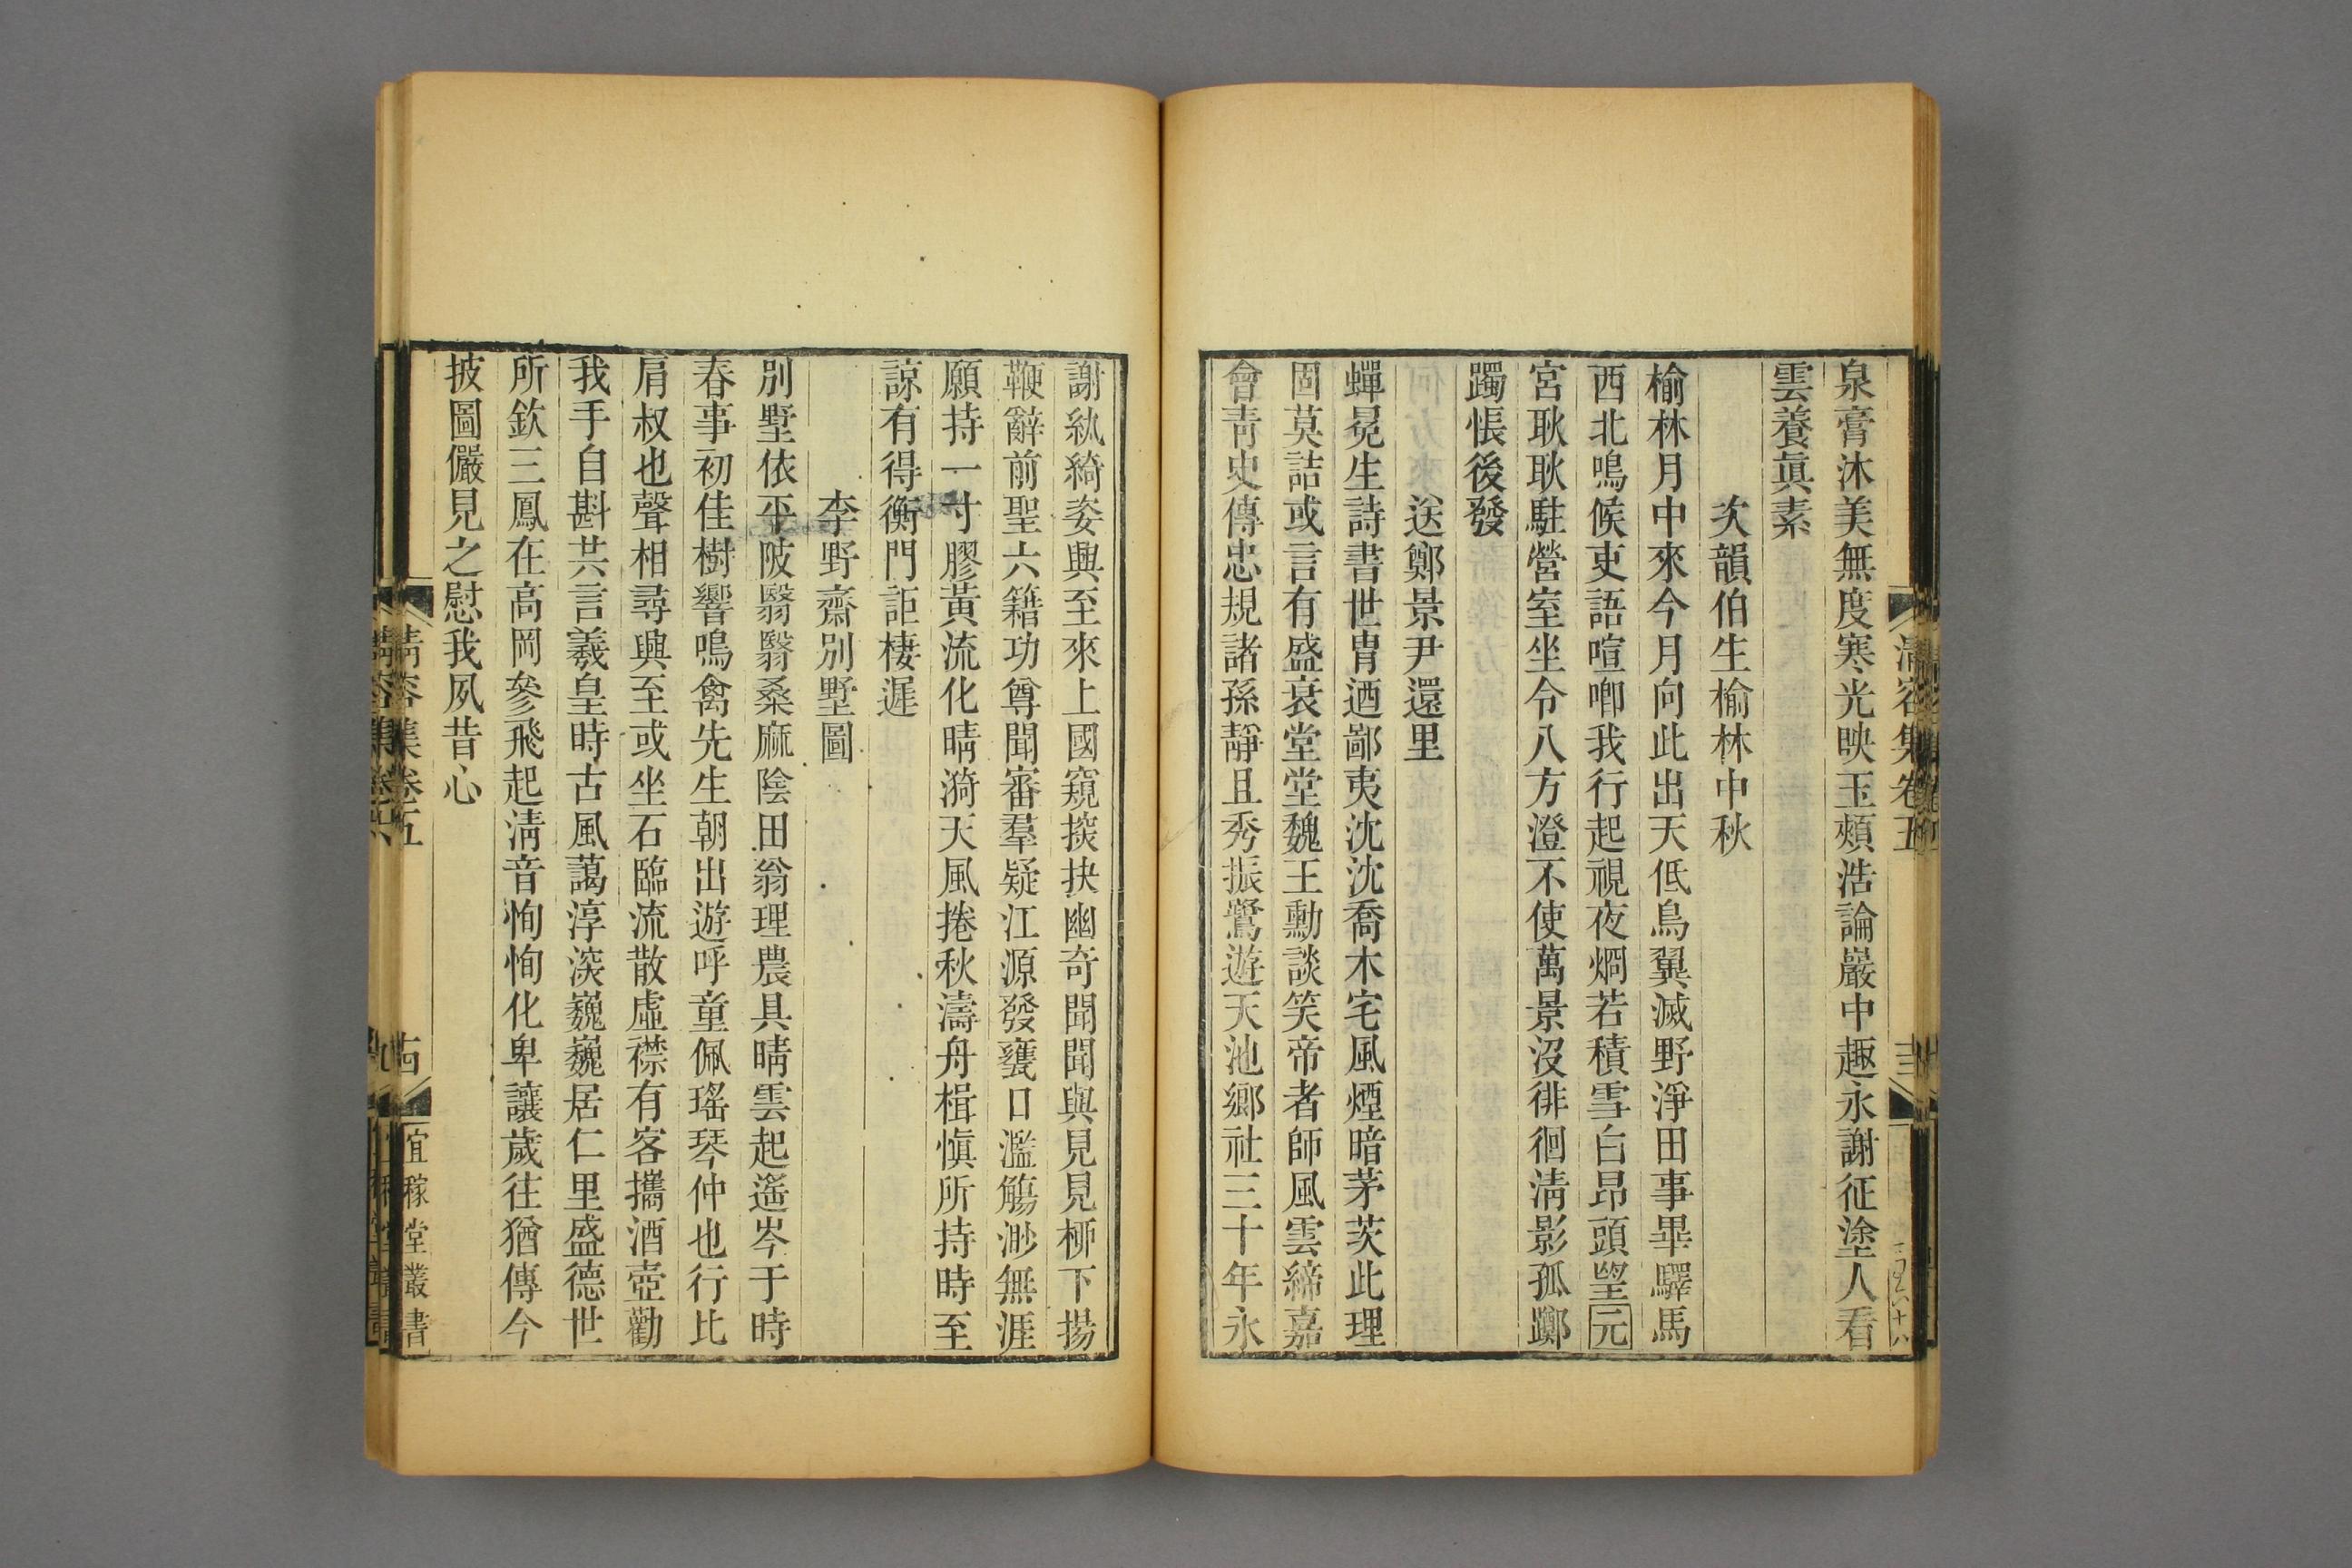 泉膏沐美無度寒光映玉頰浩論巖中趣永謝征塗人看
雲養眞素
次韻伯生榆林中秋
榆林月中來今月向此出天低鳥翼滅野淨田事畢驛馬
西北鳴候吏語喧唧我行起視夜烱若積雪白昂頭望元
宮耿耿駐營室坐令八方澄不使萬景沒徘徊淸影孤躑
躅悵後發
送鄭景尹還里
蟬冕生詩書世冑迺鄙夷沈沈喬木宅風煙暗茅茨此理
固莫詰或言有盛衰堂堂魏王勳談笑帝者師風雲締嘉
會靑史傳忠規諸孫靜且秀振鷺遊天池鄉社三十年永
謝紈綺姿興至來上國窺掞抉幽奇聞聞與見見柳下揚
鞭辭前聖六籍功尊聞審羣疑江源發甕口濫觴渺無涯
願持一寸膠黃流化晴漪天風捲秋濤舟楫愼所持時至
諒有得衡門詎棲遲
李野齋別墅圖
別墅依平陂翳翳桑麻陰田翁理農具晴雲起遙岑于時
春事初佳樹響鳴禽先生朝出遊呼童佩瑤琴仲也行比
肩叔也聲相尋興至或坐石臨流散虛襟有客攜酒壺勸
我手自斟共言羲皇時古風藹淳深巍巍居仁里盛德世
所欽三鳳在高岡參飛起淸音恂恂化卑讓歲往猶傳今
披圖儼見之慰我夙昔心
淸容集卷五
宜稼堂叢書